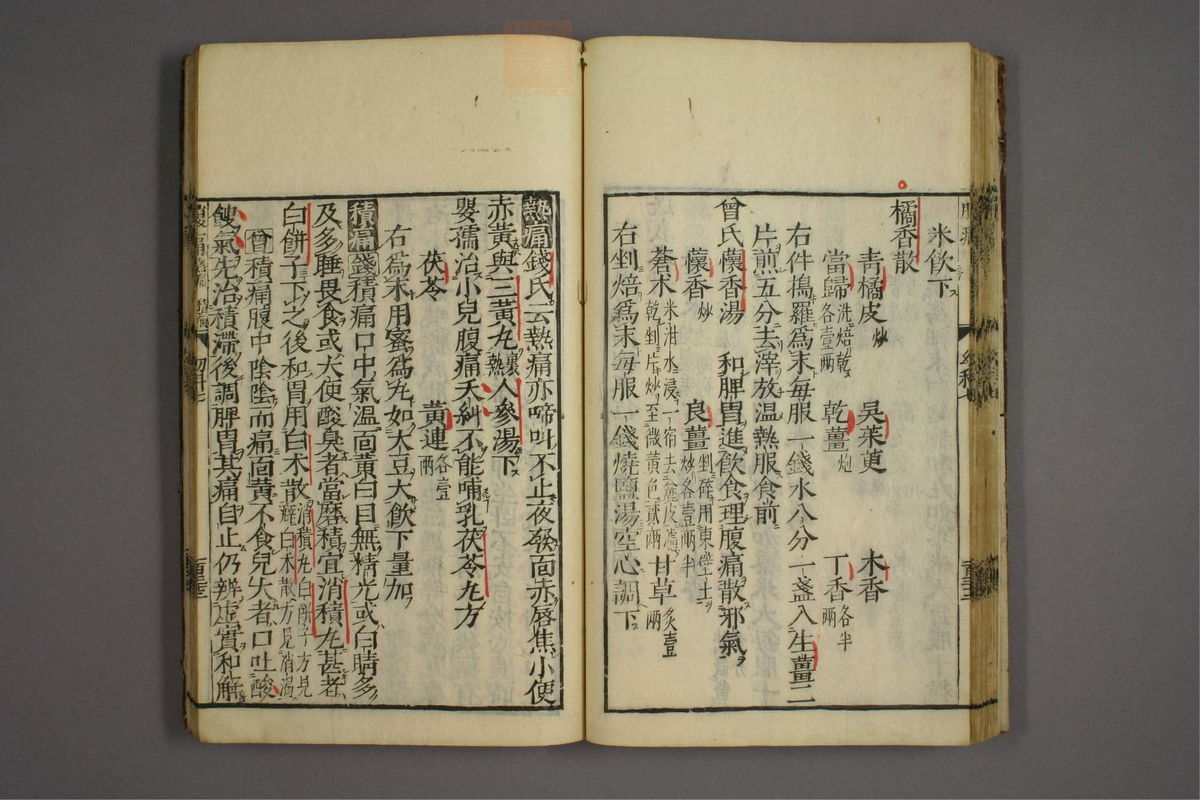 米飲下
橘香散
青橘皮炒 吳茱萸 木香
當歸洗焙乾各壹兩 乾薑炮 丁香各半兩
右件搗羅爲末每服一錢水八分一盞入生薑二
片煎五分去滓放温熱服食前
曾氏蘹香湯 和脾胃進飲食理腹痛散邪氣
蘹香炒 良薑剉碎用東壁土炒各壹兩半
蒼术米泔水浸一宿去麄皮濾乾剉片炒至微黄色貳兩 甘草炙壹兩
右剉焙爲末每服一錢燒鹽湯空心調下
熱痛錢氏云熱痛亦啼叫不止夜發面赤唇焦小便
赤黃與三黃丸裏熱人參湯下
嬰孺治小兒腹痛夭糾不能哺乳茯苓丸方
茯苓 黃連各壹兩
右爲末用蜜爲丸如大豆大飲下量加
積痛錢積痛口中氣溫面黃白目無精光或白睛多
及多睡畏食或大便酸臭者當磨積宜消積丸甚者
白餅子下之後和胃用白术散消積丸白餅子方見癖白术散方見消渴
曾積痛腹中陰陰而痛面黃不食兒大者口吐酸
餿氣先治積滯後調脾胃其痛自止仍辨虛實和解